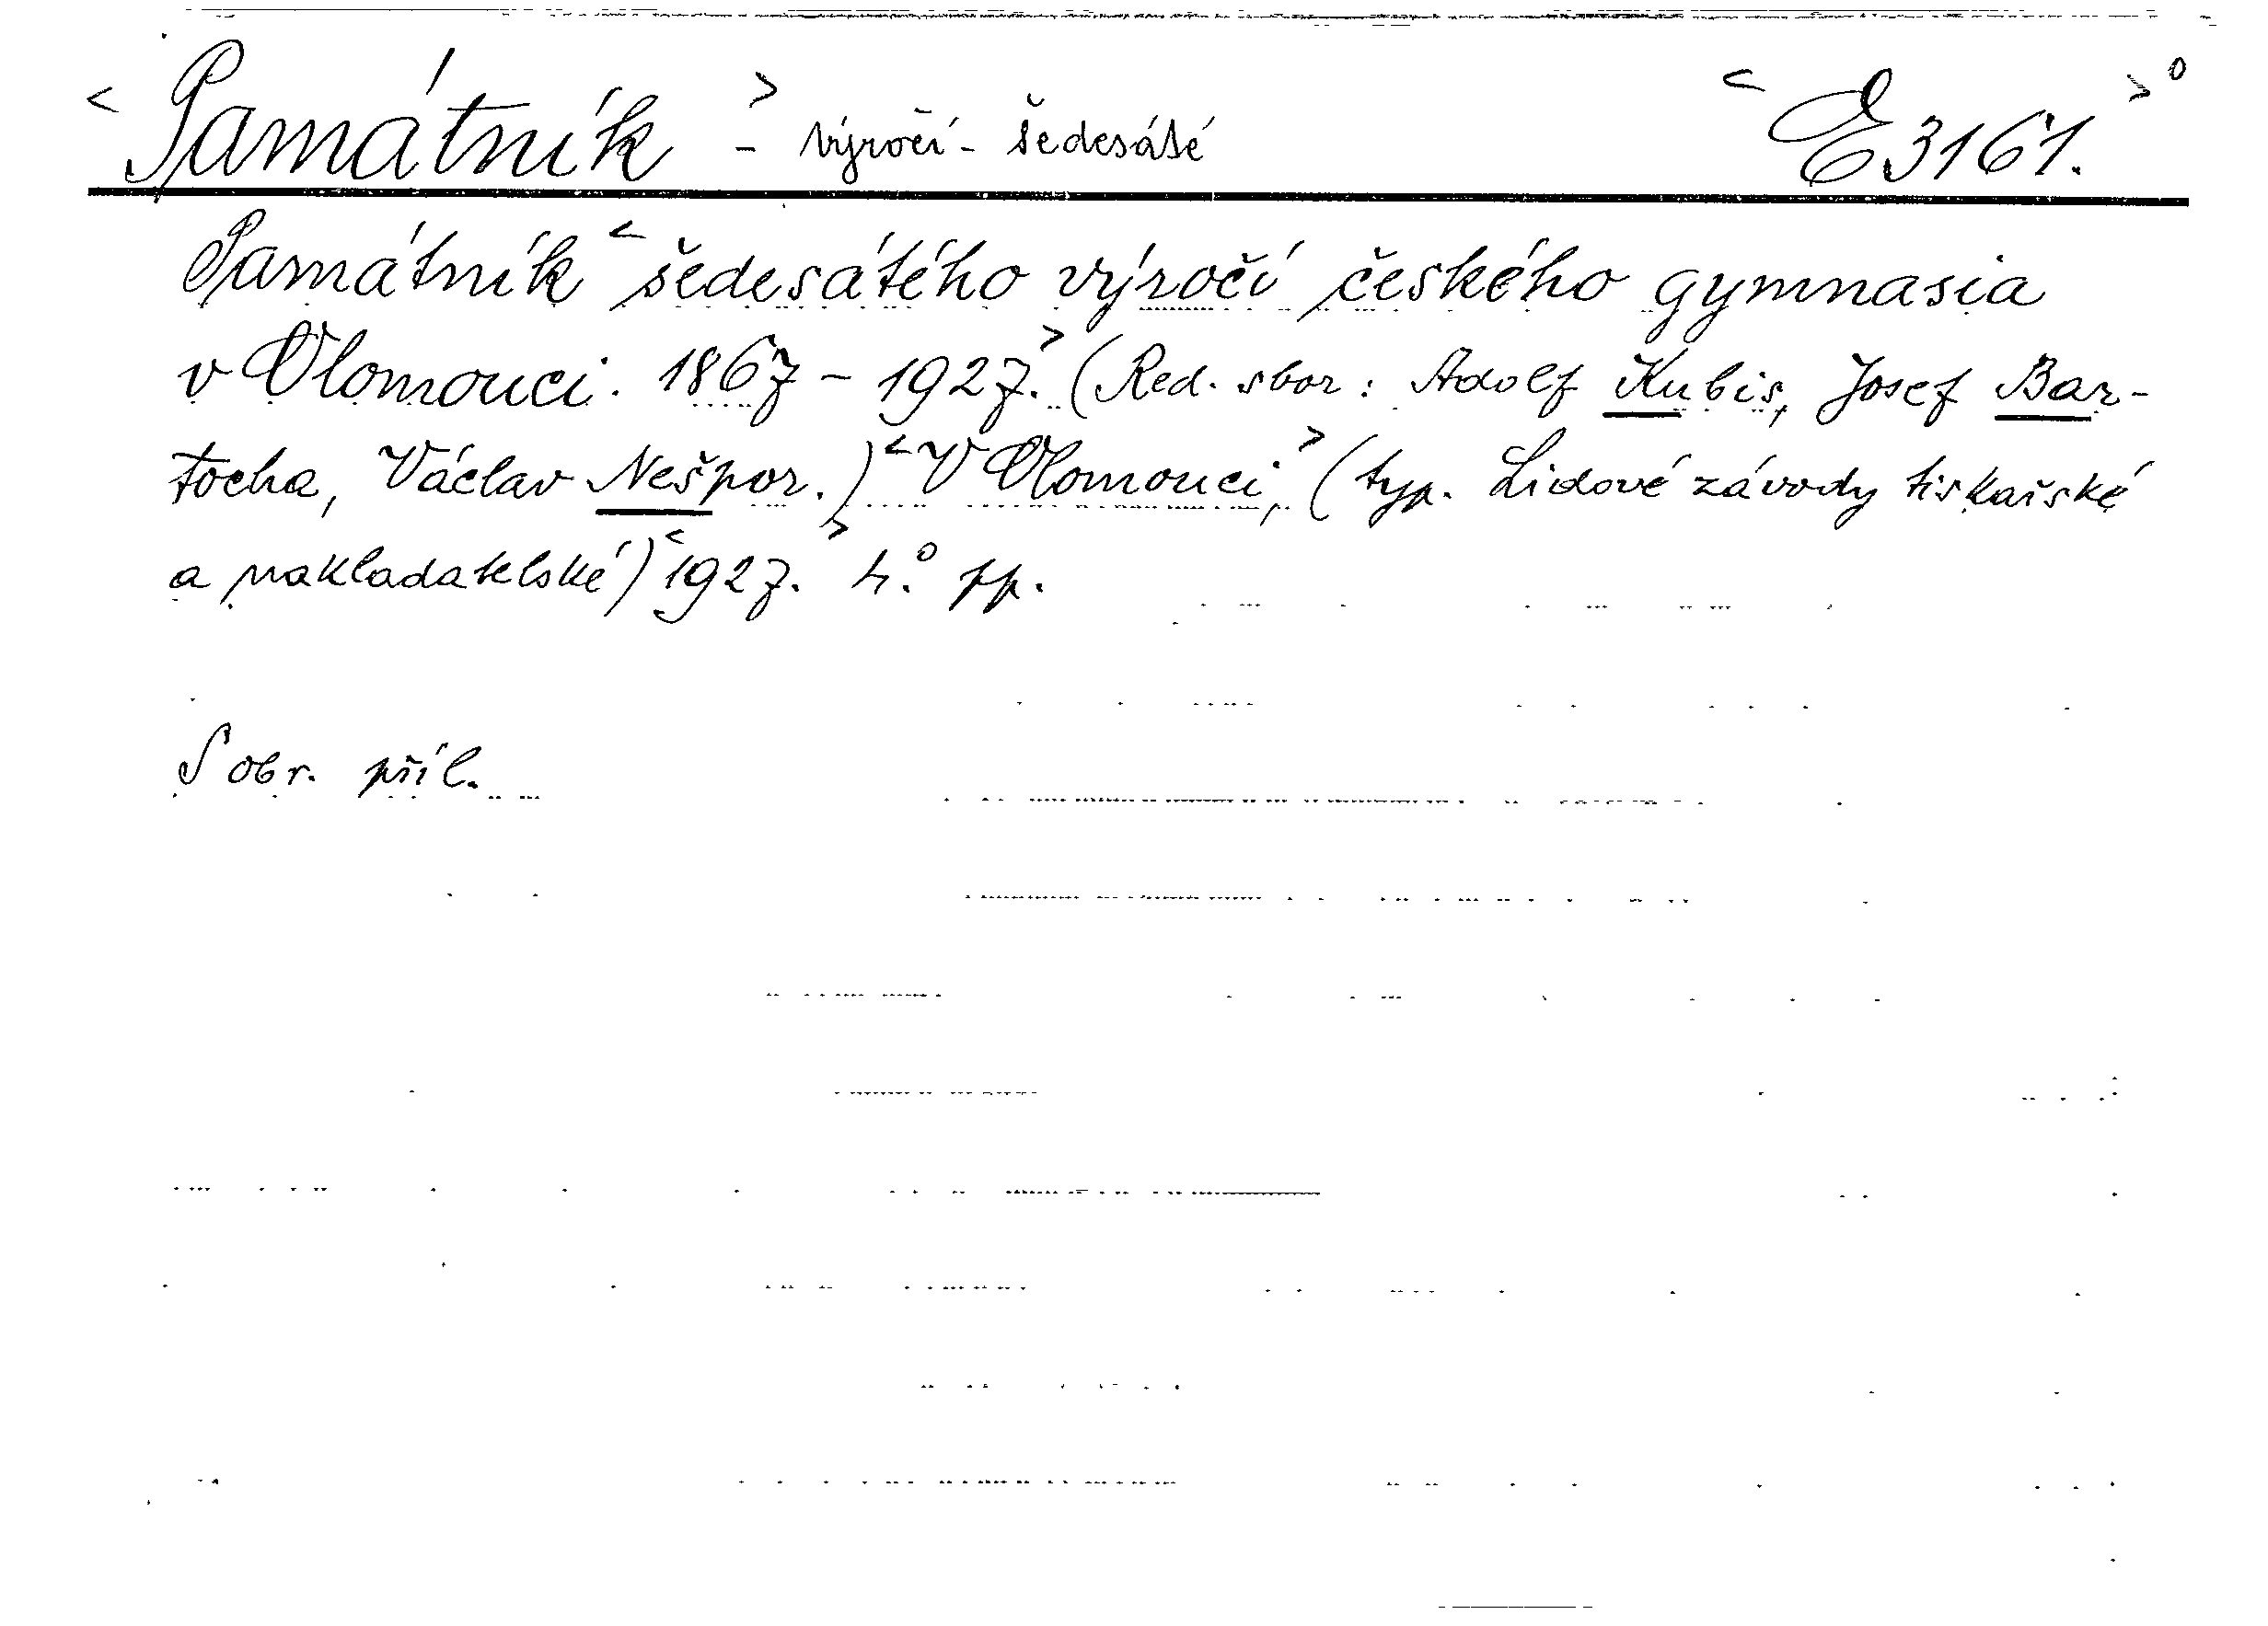 < Památník > - výročí - šedesáté < E 3161. > o
Památník < šedesátého výročí českého gymnasia
v Olomouci. 1867 - 1927. > (Red. sbor: Adolf Kubis, Josef Bar-
tocha, Václav Nešpor.) < V Olomouci, > (typ. Lidové závody tiskařské
a nakladatelské) < 1927. > 4.° pp.
S obr. příl.